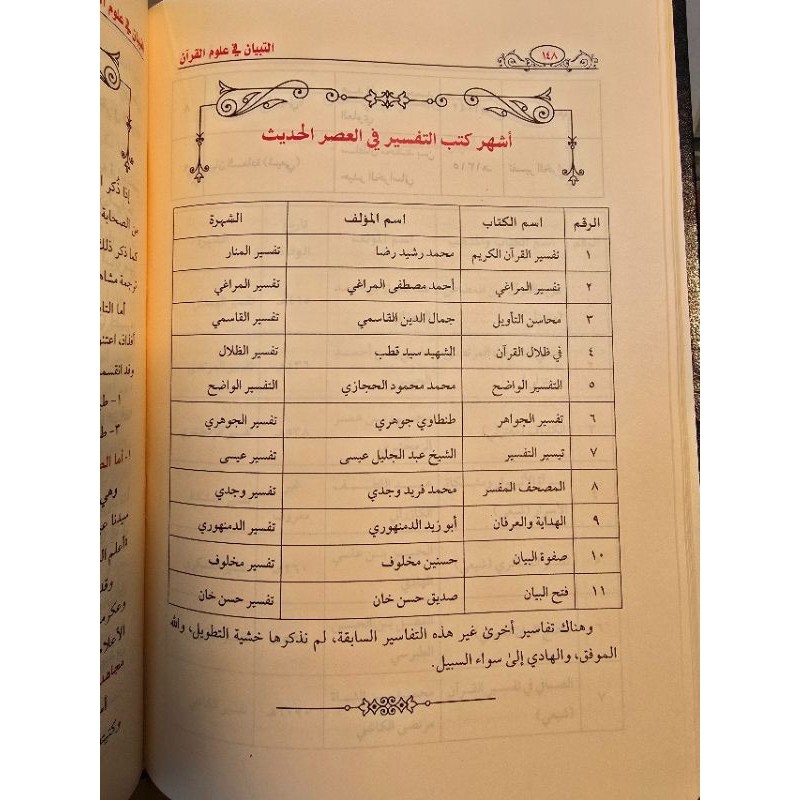 ١٤٨
التبيان في علوم القرآن
أشهر كتب التفسير في العصر الحديث
الرقم اسم الكتاب اسم المؤلف الشهرة
١ تفسير القرآن الكريم محمد رشيد رضا تفسير المنار
٢ تفسير المراغي أحمد مصطفى المراغي تفسير المراغي
٣ محاسن التأويل جمال الدين القاسمي تفسير القاسمي
٤ في ظلال القرآن الشهيد سيد قطب تفسير الظلال
٥ التفسير الواضح محمد محمود الحجازي التفسير الواضح
٦ تفسير الجواهر طنطاوي جوهري تفسير الجوهري
٧ تيسير التفسير الشيخ عبد الجليل عيسى تفسير عيسى
٨ المصحف المفسر محمد فريد وجدي تفسير وجدي
٩ الهداية والعرفان أبو زيد الدمنهوري تفسير الدمنهوري
١٠ صفوة البيان حسنين مخلوف تفسير مخلوف
١١ فتح البيان صديق حسن خان تفسير حسن خان
وهناك تفاسير أخرىٰ غير هذه التفاسير السابقة، لم نذكرها خشية التطويل، والله
الموفق، والهادي إلىٰ سواء السبيل.
إذا ذُكر
من الصحابة
كما ذكر ذلك
ترجمة مشاه
أما التا
أفذاذ، اعتنو
وقد انقسمـ
١- طـ
٣- طـ
١- أما الط
وهي
سيدنا ع
وقد
الأعلا